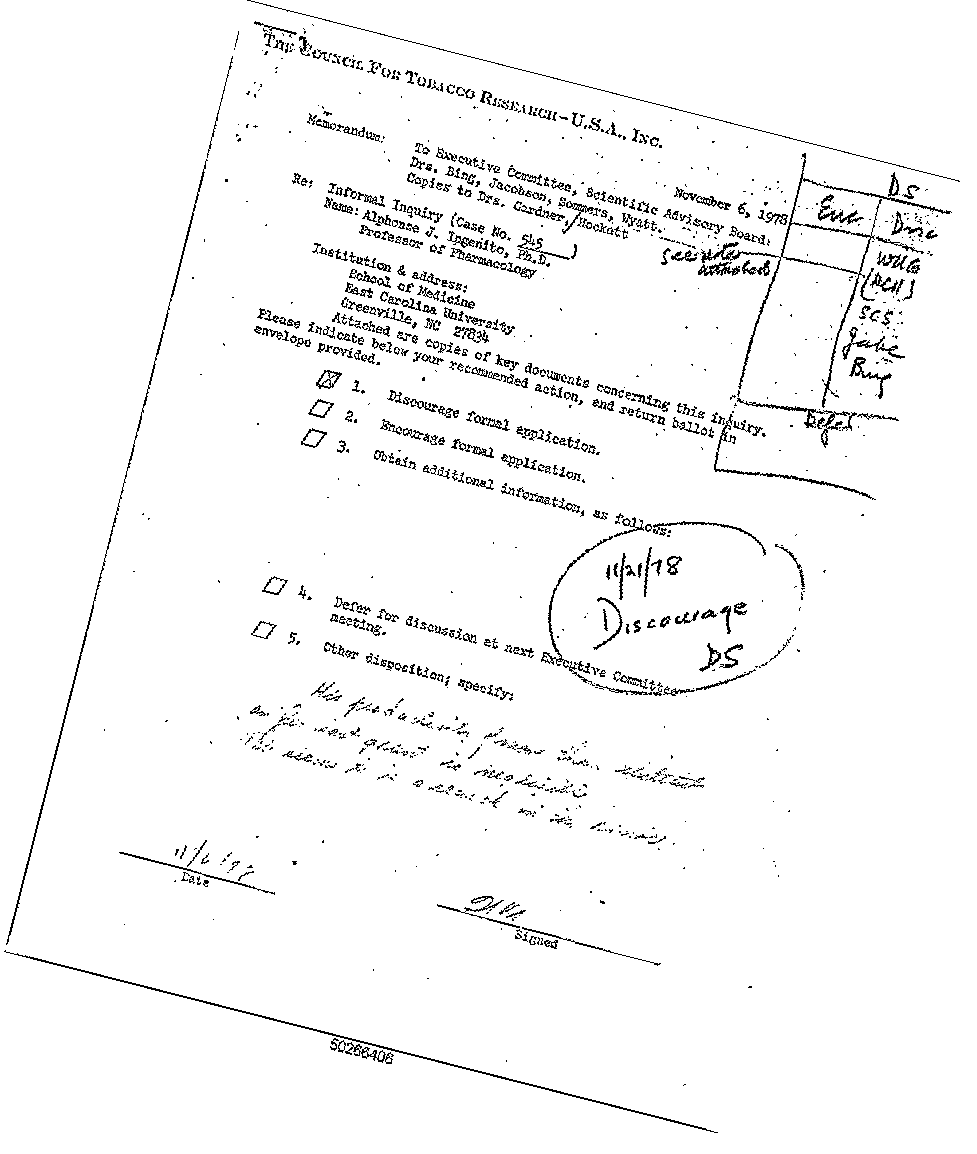 THE COUNCIL FOR TOBACCO RESEARCH-U.S.A., INC.
November 6, 1978
Memorandum:
To Executive Committee, Scientific Advisory Board:
Drs. Bing, Jacobson, Sommers, Wyatt.
Copies to Drs. Gardner, Hockett
see note
attached
Re: Informal Inquiry (Case No. 545 )
Name: Alphonse J. Ingenito, Ph.D.
Professor of Pharmacology
Institution & address:
School of Medicine
East Carolina University
Greenville, NC 27834
Attached are copies of key documents concerning this inquiry.
Please indicate below your recommended action, and return ballot in
envelope provided.
1. Discourage formal application.
2. Encourage formal application.
3. Obtain additional information, as follows:
4. Defer for discussion at next Executive Committee
meeting.
5. Other disposition; specify:
DS
Enc Disc
WUG
(RCH)
SCS
Bing
Defer
11/21/78
Discourage
DS
Date
Signed
50266406